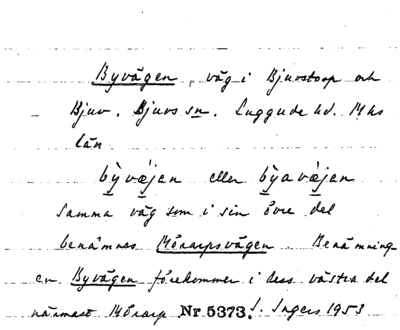 Byvägen, väg i Bjuvstorp och
Bjuv. Bjuvs sn. Luggude hd. Mhs
län.
by̆væ̀jen eller by̆avæ̀jen
Samma väg som i sin övre del
benämnes Mörarpsvägen. Benämning-
en Byvägen förekommer i dess västra del
närmast Mörarp Nr. 5373. I. Ingers 1953